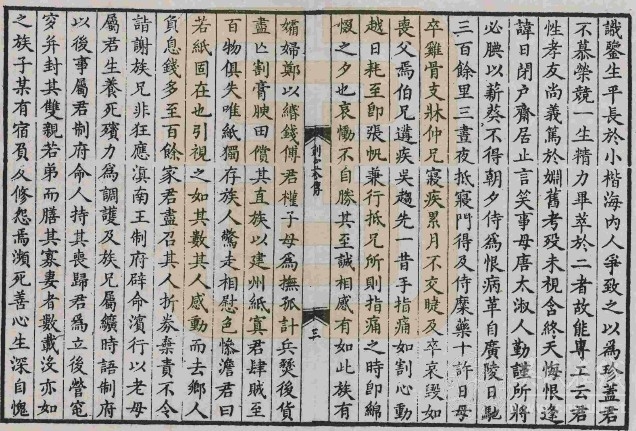 識鑒生平長於小楷海內人爭致之以為珍蓋君
不慕榮競一生精力畢萃於二者故能專工云君
性孝友尚義篤於婣舊考歿未視含終天悔恨逢
諱日閉戶齋居止言笑事母唐太淑人勤謹所將
必腆以薪葵不得朝夕侍為恨病革自廣陵日馳
三百餘里三晝夜抵寢門得及侍糜藥十許日母
卒雞骨支牀仲兄寢疾累月不交睫及卒哀毀如
喪父焉伯兄遘疾吳趨先一昔手指痛如割心動
越日耗至即張帆兼行抵兄所則指痛之時即綿
惙之夕也哀慟不自勝其至誠相感有如此族有
劉公公傳
三
孀婦鄭以緡錢傅君權子母為撫孤計兵燹後貨
盡亡割膏腴田償其直族以建州紙寘君肆賊至
百物俱失唯紙獨存族人驚走相慰色慘澹君曰
若紙固在也引視之如其數其人感動而去鄉人
負息錢多至百餘家君盡召其人折券棄責不令
詣謝族兄非狂應滇南王制府辟命濱行以老母
屬君生養死殯力為調護及族兄屬纊時語制府
以後事屬君制府命人持其喪歸君為立後營窀
穸并封其雙親若弟而膳其寡妻者數載沒亦如
之族子某有宿負以修怨焉瀕死善心生深自愧